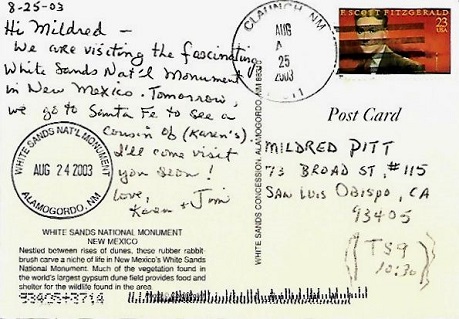 8-25-03
Hi Mildred —
We are visiting the fascinating
White Sands Nat'l Monument
in New Mexico. Tomorrow,
we go to Santa Fe to see a
cousin of (Karen's).
I'll come visit
you soon!
Love,
Karen + Jim
WHITE SANDS NAT'L MONUMENT
AUG 24 2003
ALAMOGORDO, NM
WHITE SANDS NATIONAL MONUMENT
NEW MEXICO
Nestled between rises of dunes, these rubber rabbit-
brush carve a niche of life in New Mexico's White Sands
National Monument. Much of the vegetation found in
the world's largest gypsum dune field provides food and
shelter for the wildlife found in the area.
93405+3714
WHITE SANDS CONCESSION, ALAMOGORDO, NM 88310
CLAUNCH, NM
AUG
25
2003
F. SCOTT FITZGERALD
23
USA
Post Card
MILDRED PITT
73 BROAD ST, #115
SAN LUIS OBISPO, CA
93405
(TS9
10:30)